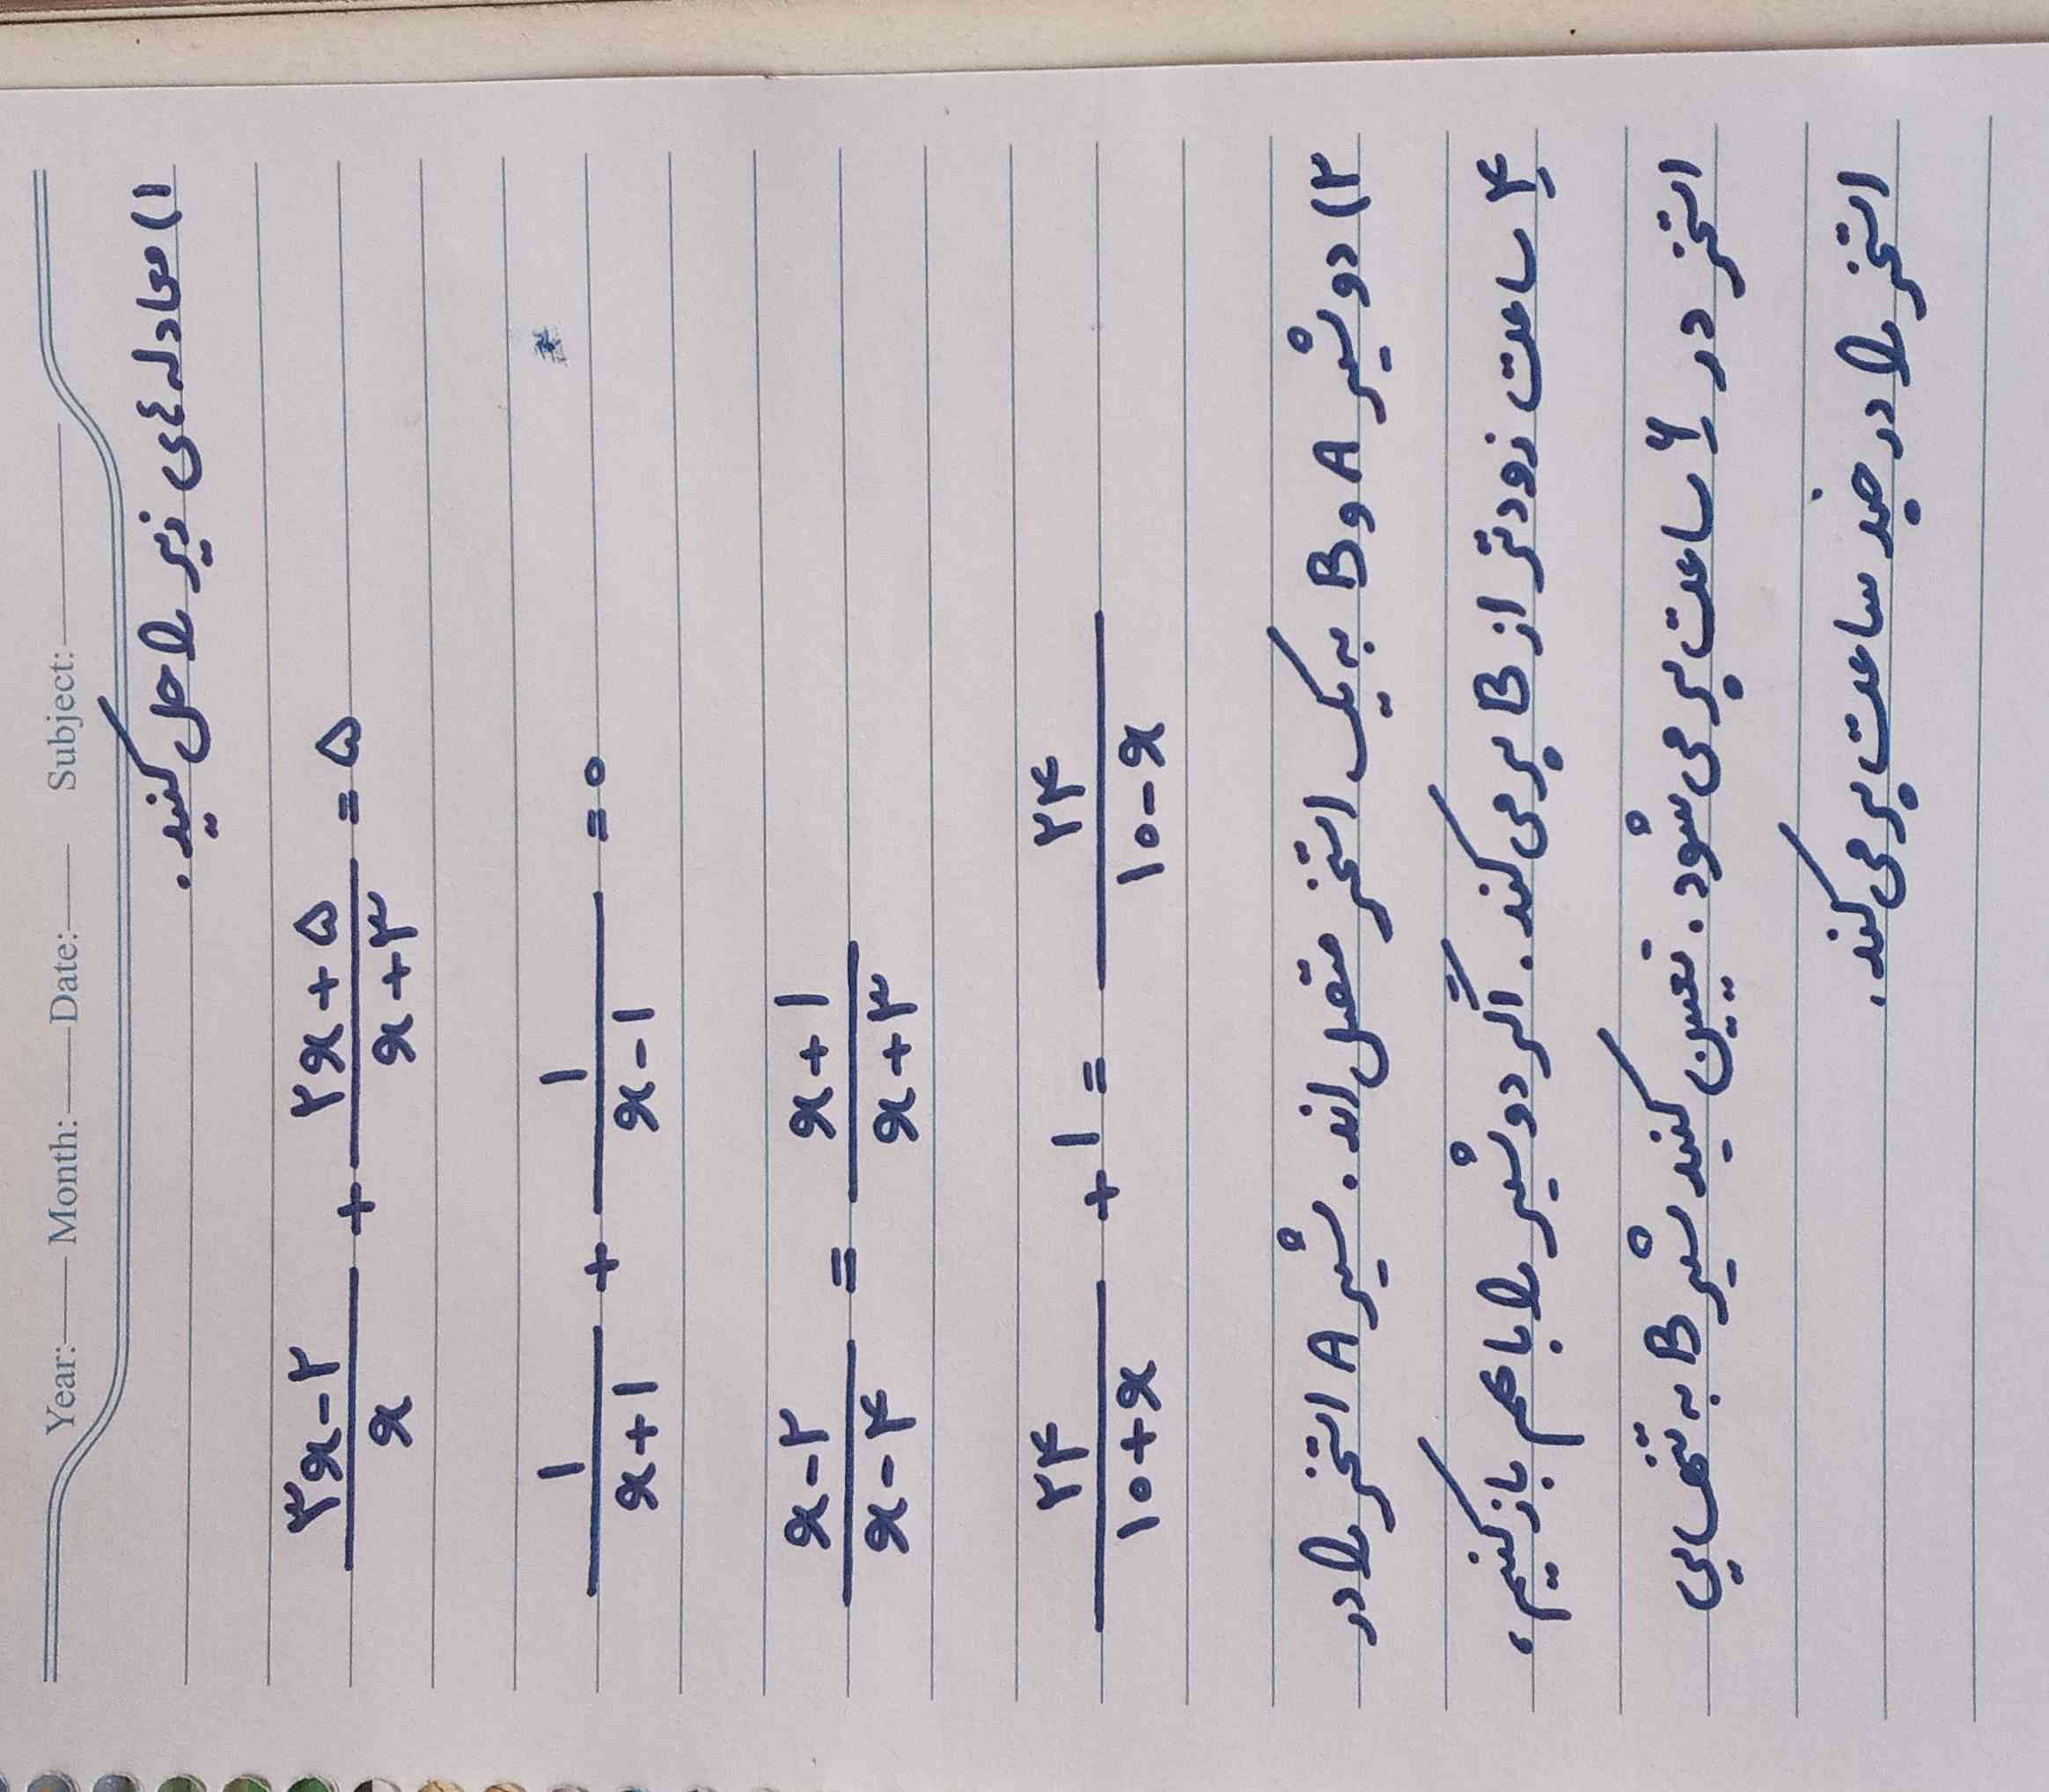 Year: Month: Date: Subject:
۱) معادله های زیر را حل کنید.
(۳x-۲)/x + (۲x+۵)/(x+۳) = ۵
۱/(x+۱) + ۱/(x-۱) = ۰
(x-۲)/(x-۴) = (x+۱)/(x+۳)
۲۴/(۱۰+x) + ۱ = ۲۴/(۱۰-x)
۲) دو شیر A و B به یک استخر متصل اند. شیر A استخر را در
۴ ساعت زودتر از B پر می کند. اگر دو شیر را با هم باز کنیم،
استخر در ۶ ساعت پر می شود. تعیین کنید شیر B به تنهایی
استخر را در چند ساعت پر می کند.